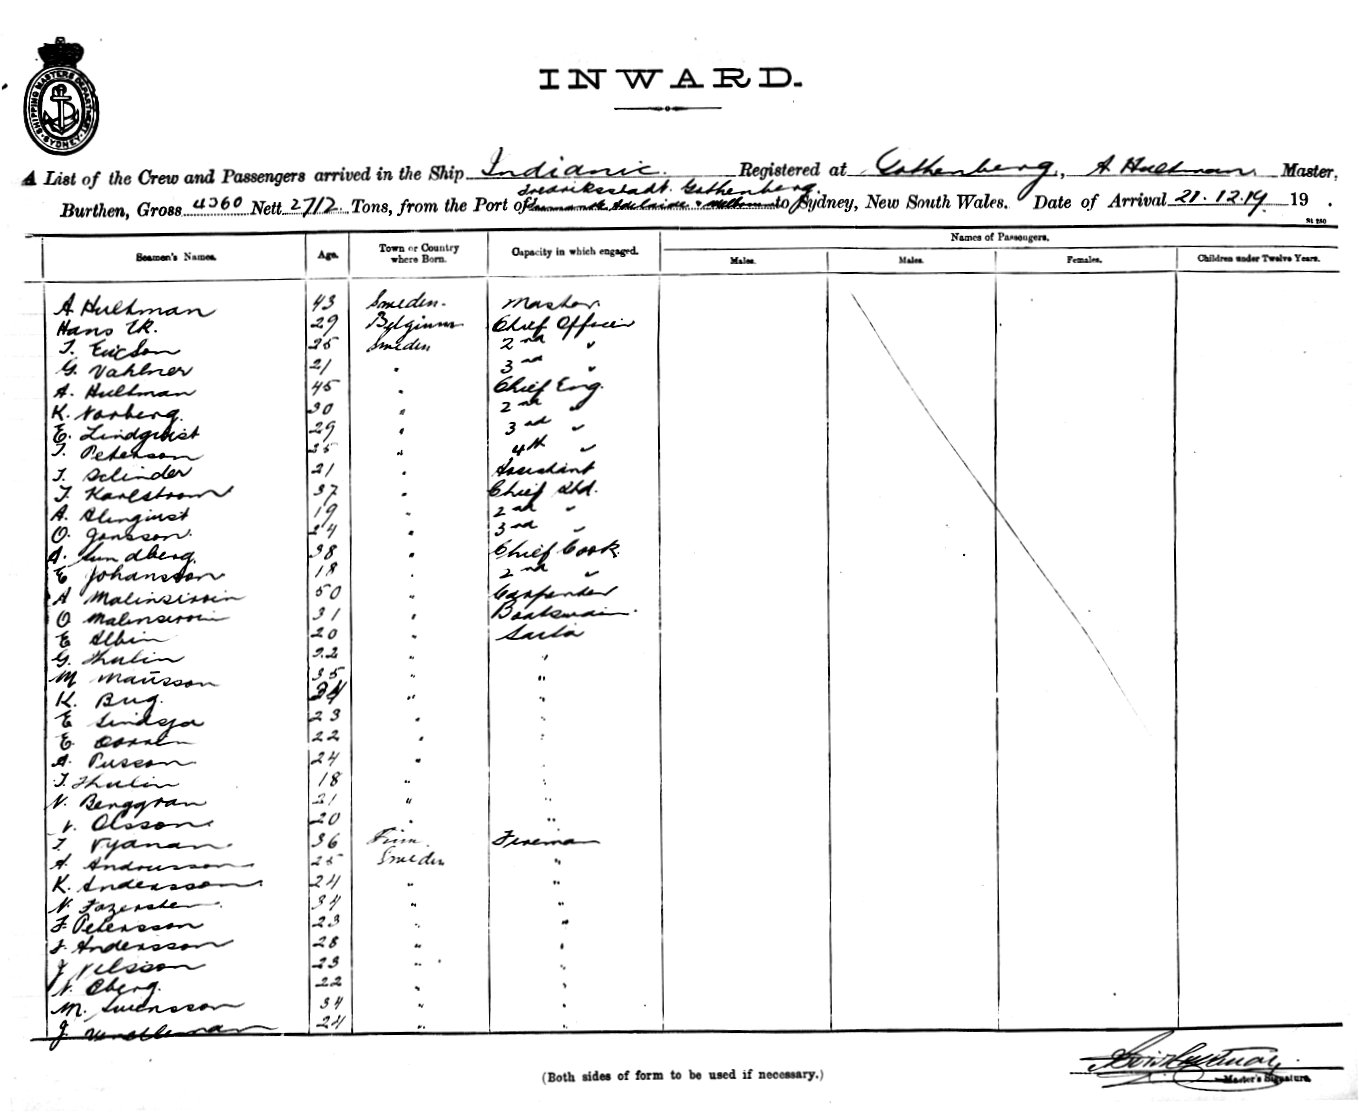 SHIPPING MASTERS DEPARTMENT SYDNEY
INWARD.
A List of the Crew and Passengers arrived in the Ship Indianic. Registered at Gothenberg, A Hultman Master,
Fredriksstadt. Gothenberg.
Burthen, Gross 4360 Nett 2712 Tons, from the Port of Adelaide to Sydney, New South Wales. Date of Arrival 21.12.19 19 .
Seamen's Names. Age. Town or Country where Born. Capacity in which engaged. Names of Passengers.
Males. Males. Females. Children under Twelve Years.
A Hultman 43 Sweden. Master
Hans 29 Belgium Chief Officer
T. Ericson 25 Sweden 2nd "
G. Vahlner 21 " 3rd "
A. Hultman 45 " Chief Eng.
K. Norberg. 30 " 2nd "
E. Lindqvist 29 " 3rd "
T. Peterson 35 " 4th "
T. Selinder 21 " Assistant
T. Karlstrom 37 " Chief Std.
A. Almqvist 19 " 2nd "
O. Jonsson. 24 " 3rd "
A. Sundberg. 38 " Chief Cook.
E Johansson 18 " 2nd "
A 50 " Carpenter
O 31 " Boatswain.
E Albin 20 " Sailor
G. Thulin 22 " "
M Mansson 35 " "
K. Bug. 24 " "
E 23 " "
E. 22 " "
A. Pusson 24 " "
T. Thulin 18 " "
N. Berggran 21 " "
V. Olsson. 20 " "
T. 36 Finn. Fireman
A. Andersson 25 Sweden "
K. Andersson 24 " "
N. 34 " "
F. Petersson 23 " "
J. Andersson 28 " "
J Nilsson 23 " "
N. Oberg. 22 " "
M. Swensson 34 " "
J 24 " "
(Both sides of form to be used if necessary.)
Master's Signature.